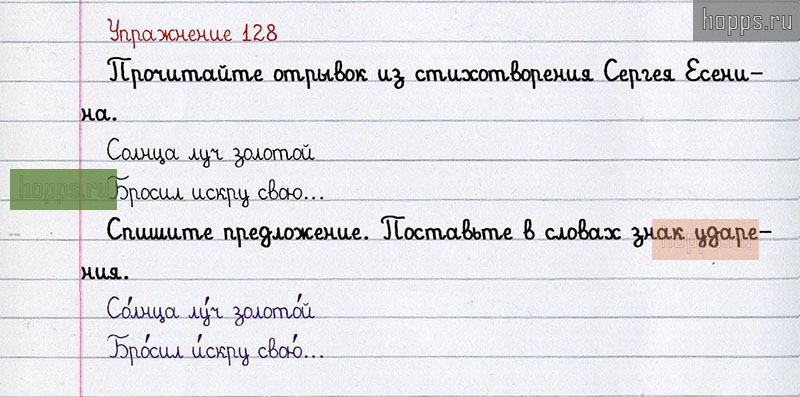 hopps.ru
Упражнение 128
Прочитайте отрывок из стихотворения Сергея Есени-
на.
Солнца луч золотой
hopps.ru
Бросил искру свою...
Спишите предложение. Поставьте в словах знак ударе-
hopps.ru
ния.
Со́лнца лу́ч золото́й
Бро́сил и́скру свою́...